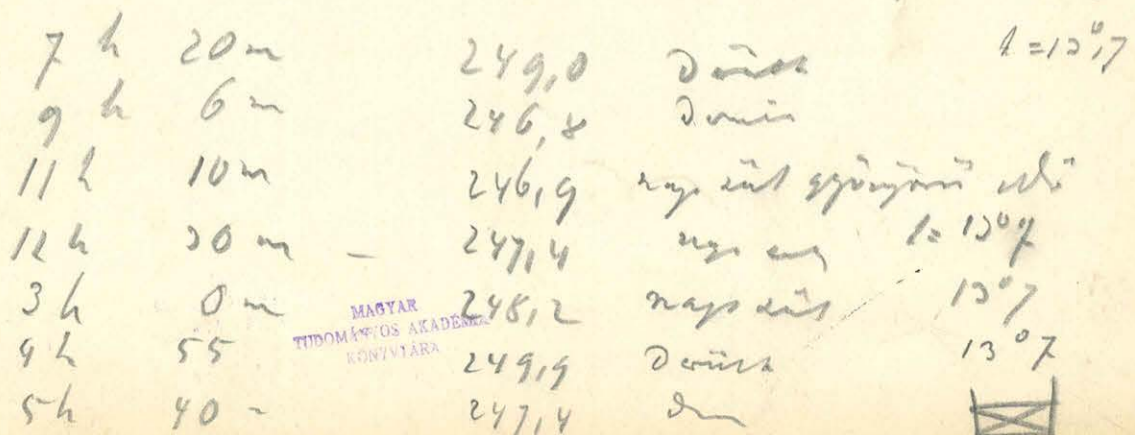 7 h 20 m 249,0 Derült t = 13°,7
9 h 6 m 246,8 Derült
11 h 10 m 246,9 nap süt gyönyörű idő
12 h 30 m – 247,4 nap süt t = 13°7
3 h 0 m 248,2 nap süt 13°7
4 h 55 249,9 Derült 13°7
5 h 40 - 247,4
MAGYAR
TUDOMÁNYOS AKADÉMIA
KÖNYVTÁRA